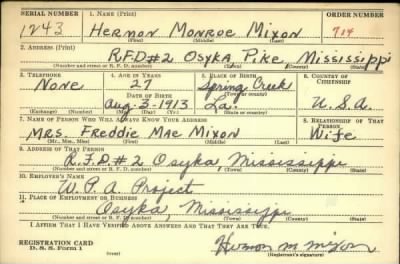 SERIAL NUMBER 1. NAME (Print) ORDER NUMBER
1243 HERMON MONROE MIXON 714
(First) (Middle) (Last)
2. ADDRESS (Print)
R.F.D#2 OSYKA PIKE MISSISSIPPI
(Number and street or R. F. D. number) (Town) (County) (State)
3. TELEPHONE 4. AGE IN YEARS 5. PLACE OF BIRTH 6. COUNTRY OF CITIZENSHIP
NONE 27 Spring Creek
DATE OF BIRTH (Town or county)
Aug-3-1913 La. U.S.A.
(Exchange) (Number) (Mo.) (Day) (Yr.) (State or country)
7. NAME OF PERSON WHO WILL ALWAYS KNOW YOUR ADDRESS 8. RELATIONSHIP OF THAT PERSON
MRS. Freddie Mae Mixon Wife
(Mr., Mrs., Miss) (First) (Middle) (Last)
9. ADDRESS OF THAT PERSON
R.F.D#2 Osyka, Mississippi
(Number and street or R. F. D. number) (Town) (County) (State)
10. EMPLOYER'S NAME
W.P.A. Project
11. PLACE OF EMPLOYMENT OR BUSINESS
Osyka, Mississippi
(Number and street or R. F. D. number) (Town) (County) (State)
I AFFIRM THAT I HAVE VERIFIED ABOVE ANSWERS AND THAT THEY ARE TRUE.
REGISTRATION CARD
D. S. S. Form 1 Hermon M Mixon
(Registrant's signature)